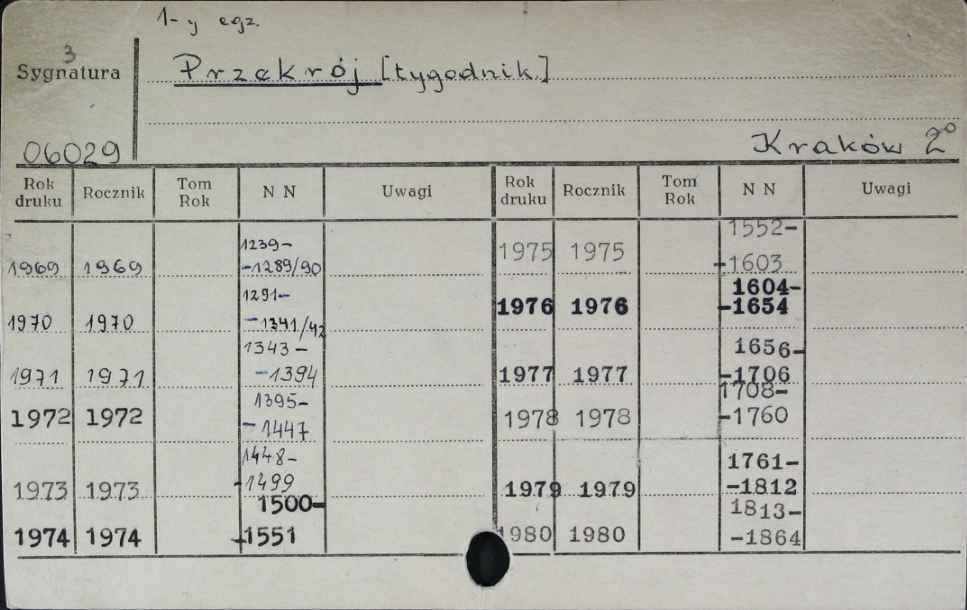 1-y egz.
3
Sygnatura
Przekrój [tygodnik]
06029
Kraków 2°
Rok druku Rocznik Tom Rok N N Uwagi Rok druku Rocznik Tom Rok N N Uwagi
1969 1969 1239-
-1289/90
1970 1970 1291-
-1341/42
1971 1971 1343-
-1394
1972 1972 1395-
-1447
1973 1973 1448-
-1499
1974 1974 1500-
-1551
1975 1975 1552-
-1603
1976 1976 1604-
-1654
1977 1977 1656-
-1706
1978 1978 1708-
-1760
1979 1979 1761-
-1812
1980 1980 1813-
-1864